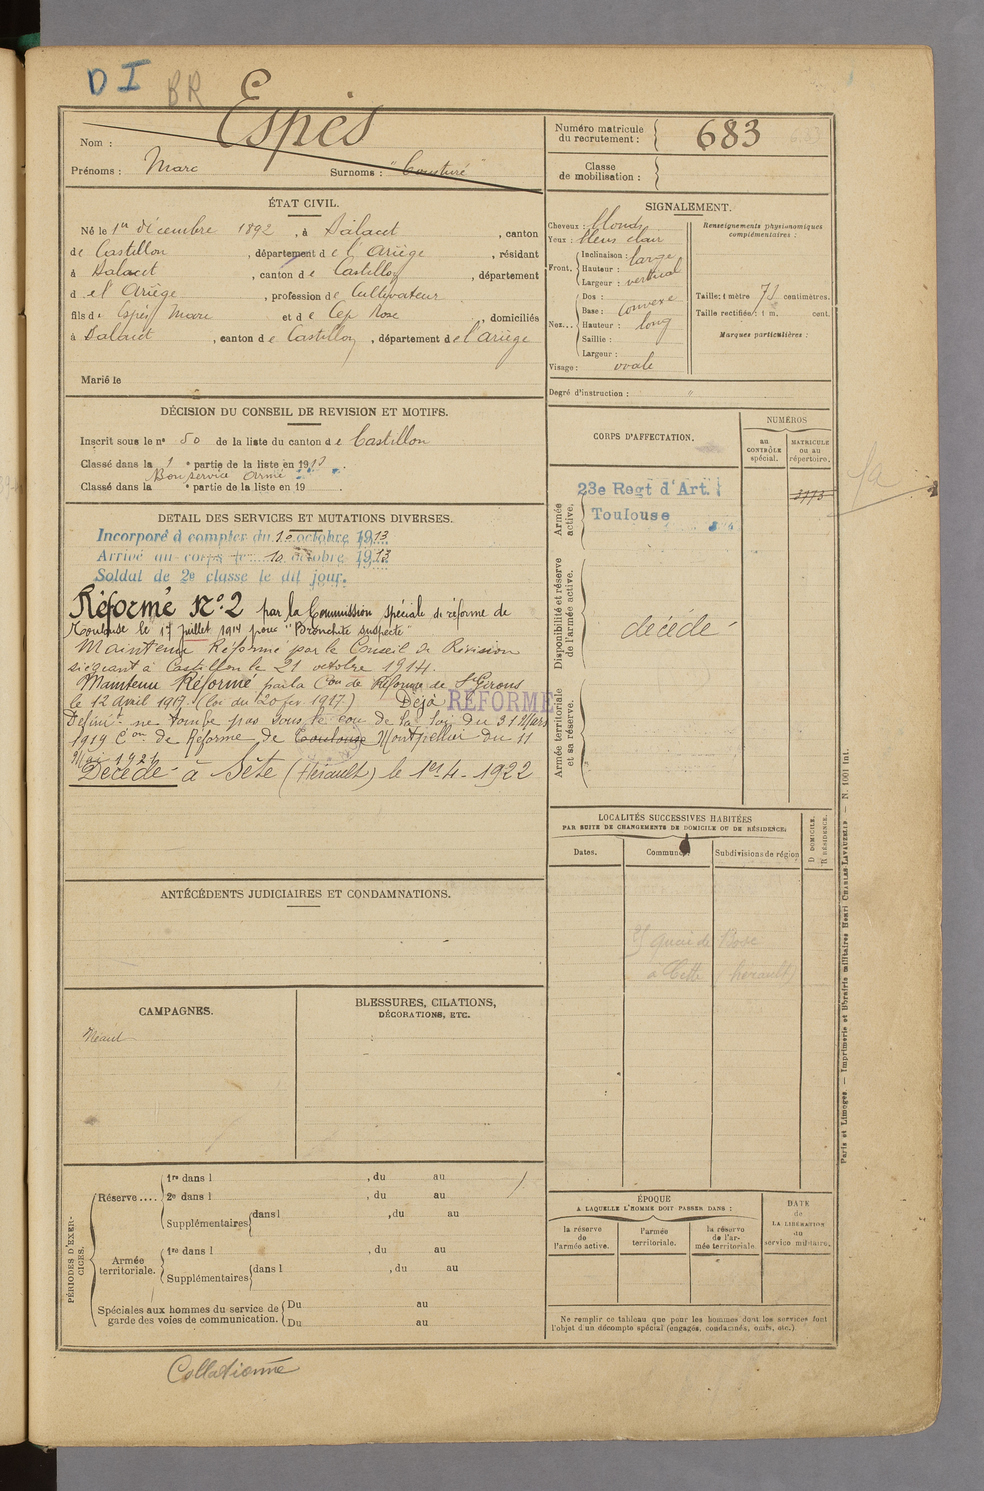 D I BR
Espès
Nom :
Prénoms : Marc Surnoms : "
Numéro matricule du recrutement : 683
Classe de mobilisation :
ÉTAT CIVIL.
Né le 1er décembre 1892, à Salaut, canton
de Castillon, département de l'Ariège, résidant
à Salaut, canton de Castillon, département
d el' Ariège, profession de Cultivateur
fils de Espès Marc et de Cep Rose, domiciliés
à Salaut, canton de Castillon, département de l'Ariège
Marié le
SIGNALEMENT.
Cheveux : blonds
Yeux : bleus clair
Front. Inclinaison : large
Hauteur : vertical
Largeur :
Nez... Dos :
Base : convexe
Hauteur : long
Saillie :
Largeur :
Visage : ovale
Renseignements physionomiques complémentaires :
Taille : 1 mètre 71 centimètres.
Taille rectifiée : 1 m. cent.
Marques particulières :
Degré d'instruction : "
DÉCISION DU CONSEIL DE REVISION ET MOTIFS.
Inscrit sous le n° 50 de la liste du canton de Castillon
Classé dans la 1e partie de la liste en 1913.
Bon service armé
Classé dans la e partie de la liste en 19
DETAIL DES SERVICES ET MUTATIONS DIVERSES.
Incorporé à compter du 10 octobre 1913
Arrivé au corps le 10 octobre 1913
Soldat de 2e classe le dit jour.
Réformé N°2 par la Commission spéciale de réforme de
Toulouse le 17 juillet 1914 pour "Bronchite suspecte"
Maintenu Réformé par le Conseil de Révision
siégeant à Castillon le 21 octobre 1914.
Maintenu Réformé par la Con de Réforme de St Girons
le 12 avril 1917. (loi du 20 fév. 1917.) Déjà RÉFORMÉ
Définit. ne tombe pas sous le cou de la loi du 31 Mars
1919 Con de Réforme de Toulouse Montpellier du 11
Mai 1921
Décédé à Sète (Hérault) le 1er-4-1922
CORPS D'AFFECTATION.
NUMÉROS
au CONTRÔLE spécial.
MATRICULE ou au répertoire.
Armée active.
23e Regt d'Art.
Toulouse
3773
Disponibilité et réserve de l'armée active.
décédé
Armée territoriale et sa réserve.
LOCALITÉS SUCCESSIVES HABITÉES
PAR SUITE DE CHANGEMENTS DE DOMICILE OU DE RÉSIDENCE.
Dates.
Communes.
Subdivisions de région
D DOMICILE.
R RÉSIDENCE.
quai de Bosc
à Cette (hérault)
ANTÉCÉDENTS JUDICIAIRES ET CONDAMNATIONS.
CAMPAGNES.
Néant
BLESSURES, CITATIONS,
DÉCORATIONS, ETC.
PÉRIODES D'EXERCICES.
Réserve .... 1re dans l , du au
2e dans l , du au
Supplémentaires dans l , du au
Armée territoriale. 1re dans l , du au
Supplémentaires dans l , du au
Spéciales aux hommes du service de garde des voies de communication. Du au
Du au
ÉPOQUE
A LAQUELLE L'HOMME DOIT PASSER DANS :
la réserve de l'armée active.
l'armée territoriale.
la réserve de l'armée territoriale
DATE de LA LIBÉRATION du service militaire.
Ne remplir ce tableau que pour les hommes dont les services font
l'objet d'un décompte spécial (engagés, condamnés, omis, etc.)
Paris et Limoges. — Imprimerie et librairie militaires Henri CHARLES-LAVAUZELLE. — N. 1001 Int.
Collationné